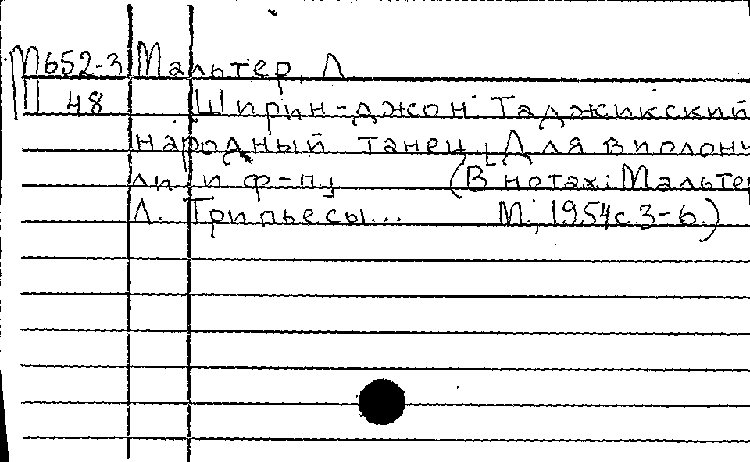 М652-3 Мальтер, Л
П 48 Ширин-джон. Таджикский
народный танец. [Для виолон
ли и ф-п] (В нотах: Мальтер
Л. Три пьесы... М., 1954 с. 3-6.)